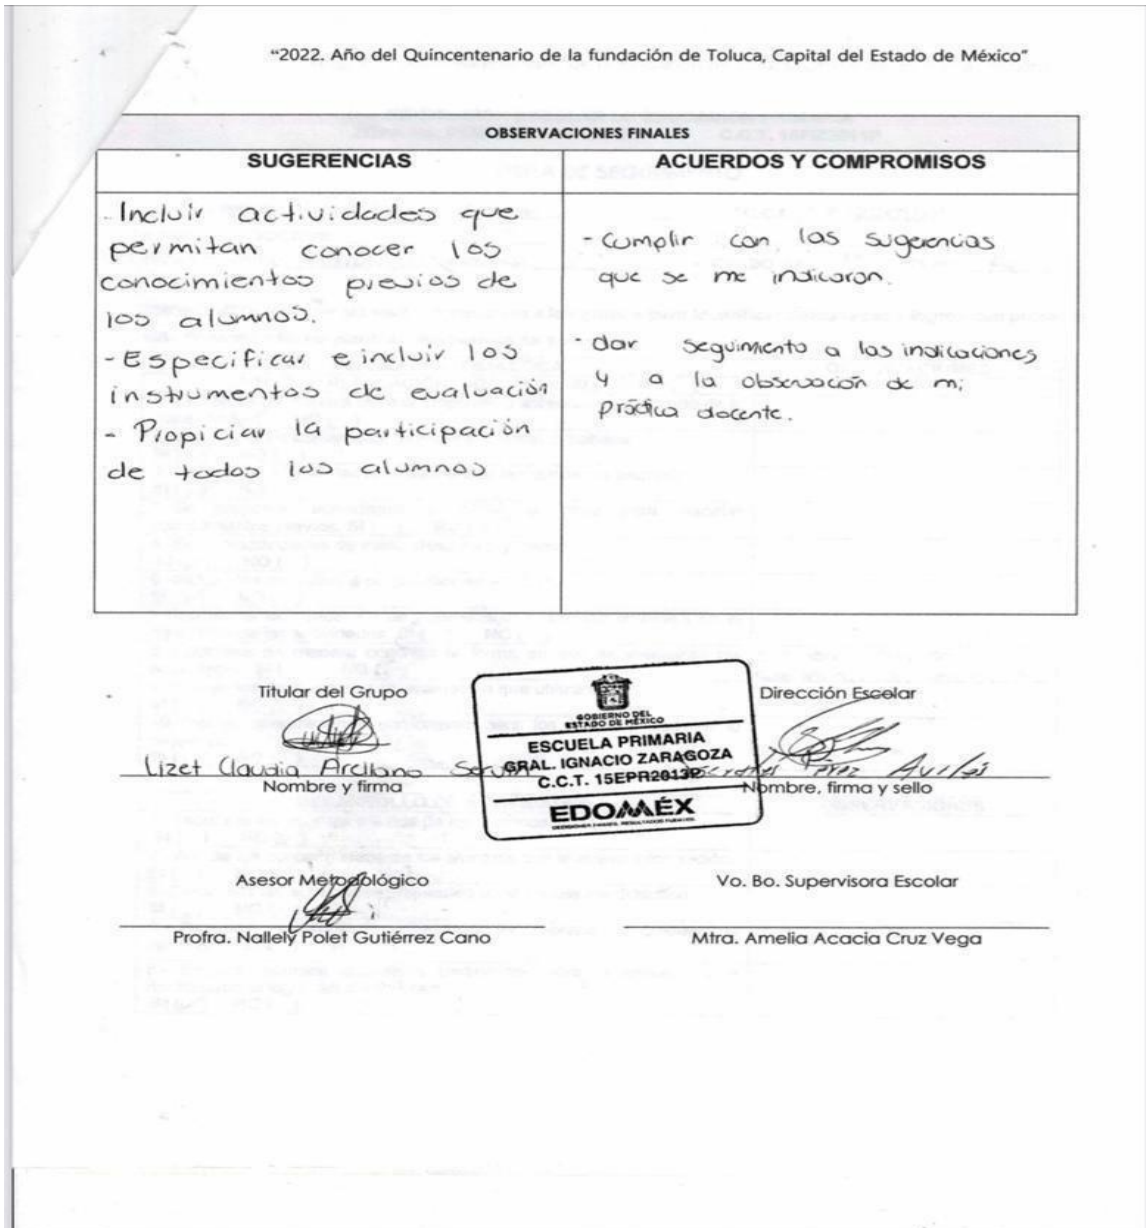 “2022. Año del Quincentenario de la fundación de Toluca, Capital del Estado de México”
OBSERVACIONES FINALES
SUGERENCIAS
- Incluir actividades que
permitan conocer los
conocimientos previos de
los alumnos.
- Especificar e incluir los
instrumentos de evaluación
- Propiciar la participación
de todos los alumnos
ACUERDOS Y COMPROMISOS
- Cumplir con las sugerencias
que se me indicaron.
- dar seguimiento a las indicaciones
y a la observación de mi
práctica docente.
Titular del Grupo
Lizet Claudia Arellano
Nombre y firma
GOBIERNO DEL
ESTADO DE MÉXICO
ESCUELA PRIMARIA
GRAL. IGNACIO ZARAGOZA
C.C.T. 15EPR2013P
EDOMÉX
DECISIONES FIRMES, RESULTADOS FUERTES.
Dirección Escolar
Pérez Avilés
Nombre, firma y sello
Asesor Metodológico
Profra. Nallely Polet Gutiérrez Cano
Vo. Bo. Supervisora Escolar
Mtra. Amelia Acacia Cruz Vega